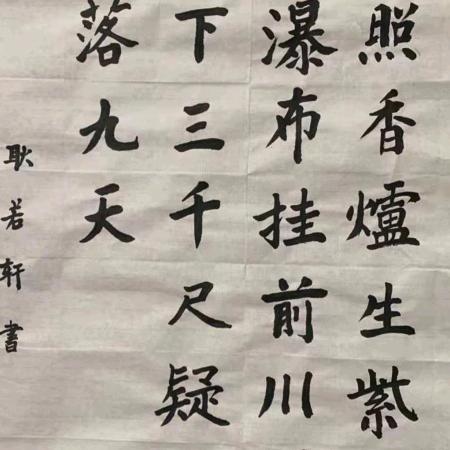 照香爐生紫
瀑布挂前川
下三千尺疑
落九天
耿若轩書